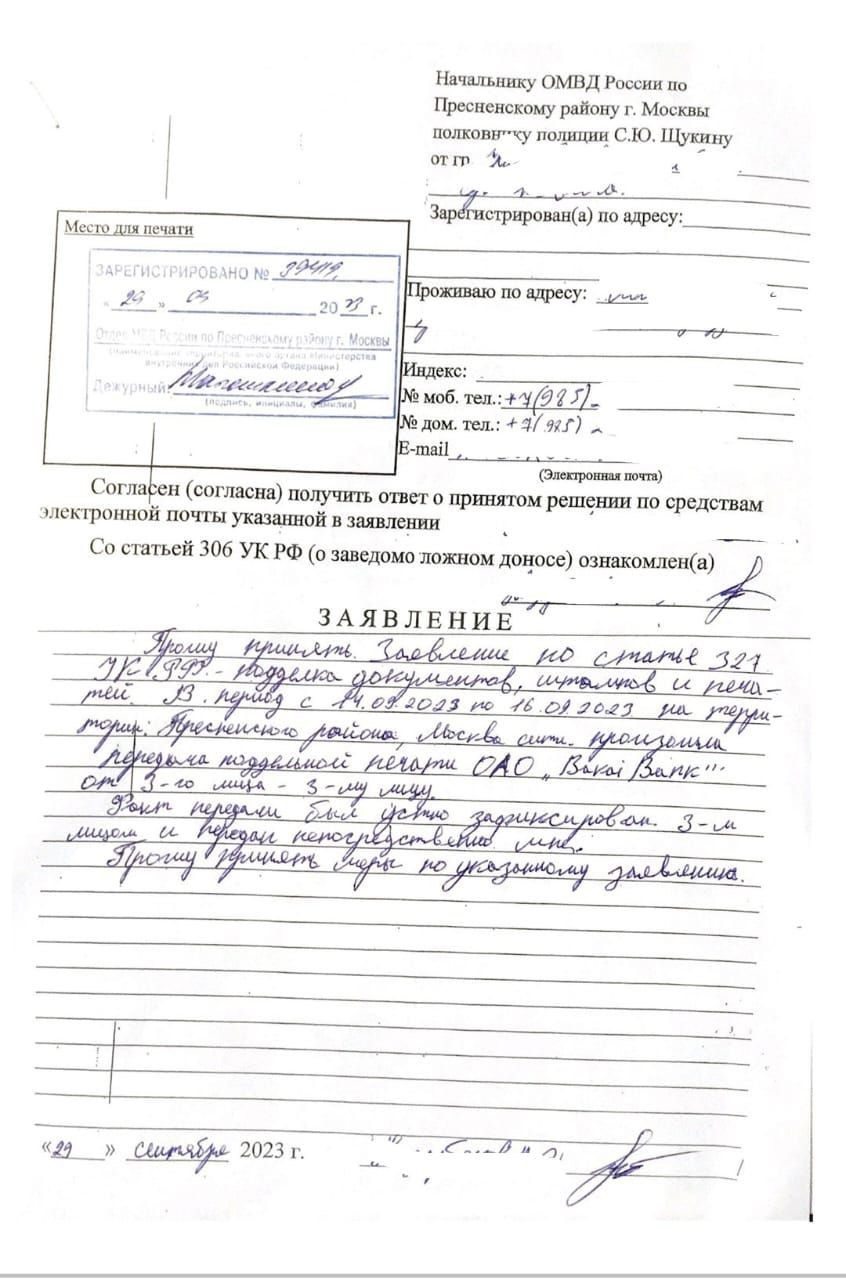 Начальнику ОМВД России по
Пресненскому району г. Москвы
полковнику полиции С.Ю. Щукину
от гр
Зарегистрирован(а) по адресу:
Место для печати
ЗАРЕГИСТРИРОВАНО №
«29» 09 2023 г.
Отдел МВД России по Пресненскому району г. Москвы
(наименование территориального органа Министерства
внутренних дел Российской Федерации)
Дежурный:
(подпись, инициалы, фамилия)
Проживаю по адресу:
Индекс:
№ моб. тел.: +7(985)
№ дом. тел.: +7(985)
E-mail
(Электронная почта)
Согласен (согласна) получить ответ о принятом решении по средствам
электронной почты указанной в заявлении
Со статьей 306 УК РФ (о заведомо ложном доносе) ознакомлен(а)
ЗАЯВЛЕНИЕ
Прошу принять Заявление по статье 327
УК РФ - подделка документов, штампов и печа-
тей. В период с 14.09.2023 по 16.09.2023 на терри-
тории: Пресненского района, Москва сити. произошла
передача поддельной печати ОАО „Bakai Bank"
от 3-го лица - 3-му лицу.
Факт передачи был устно зафиксирован 3-м
лицом и передан непосредственно мне.
Прошу принять меры по указанному заявлению.
«29» сентября 2023 г.